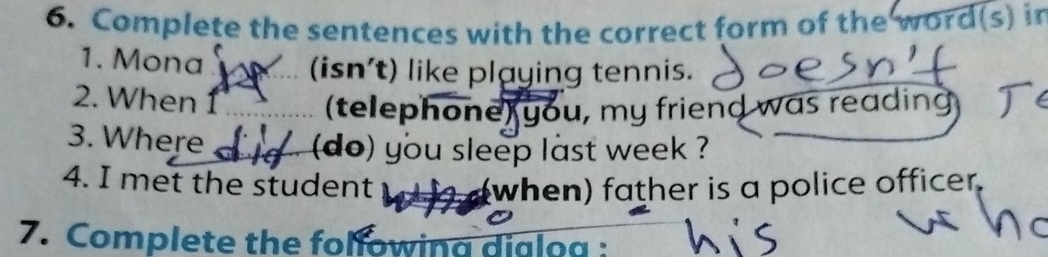 6. Complete the sentences with the correct form of the word(s) in
1. Mona ........ (isn't) like playing tennis. doesn't
2. When I ............. (telephone) you, my friend was reading Te
3. Where did (do) you sleep last week ?
4. I met the student (when) father is a police officer. who
7. Complete the following dialog : his